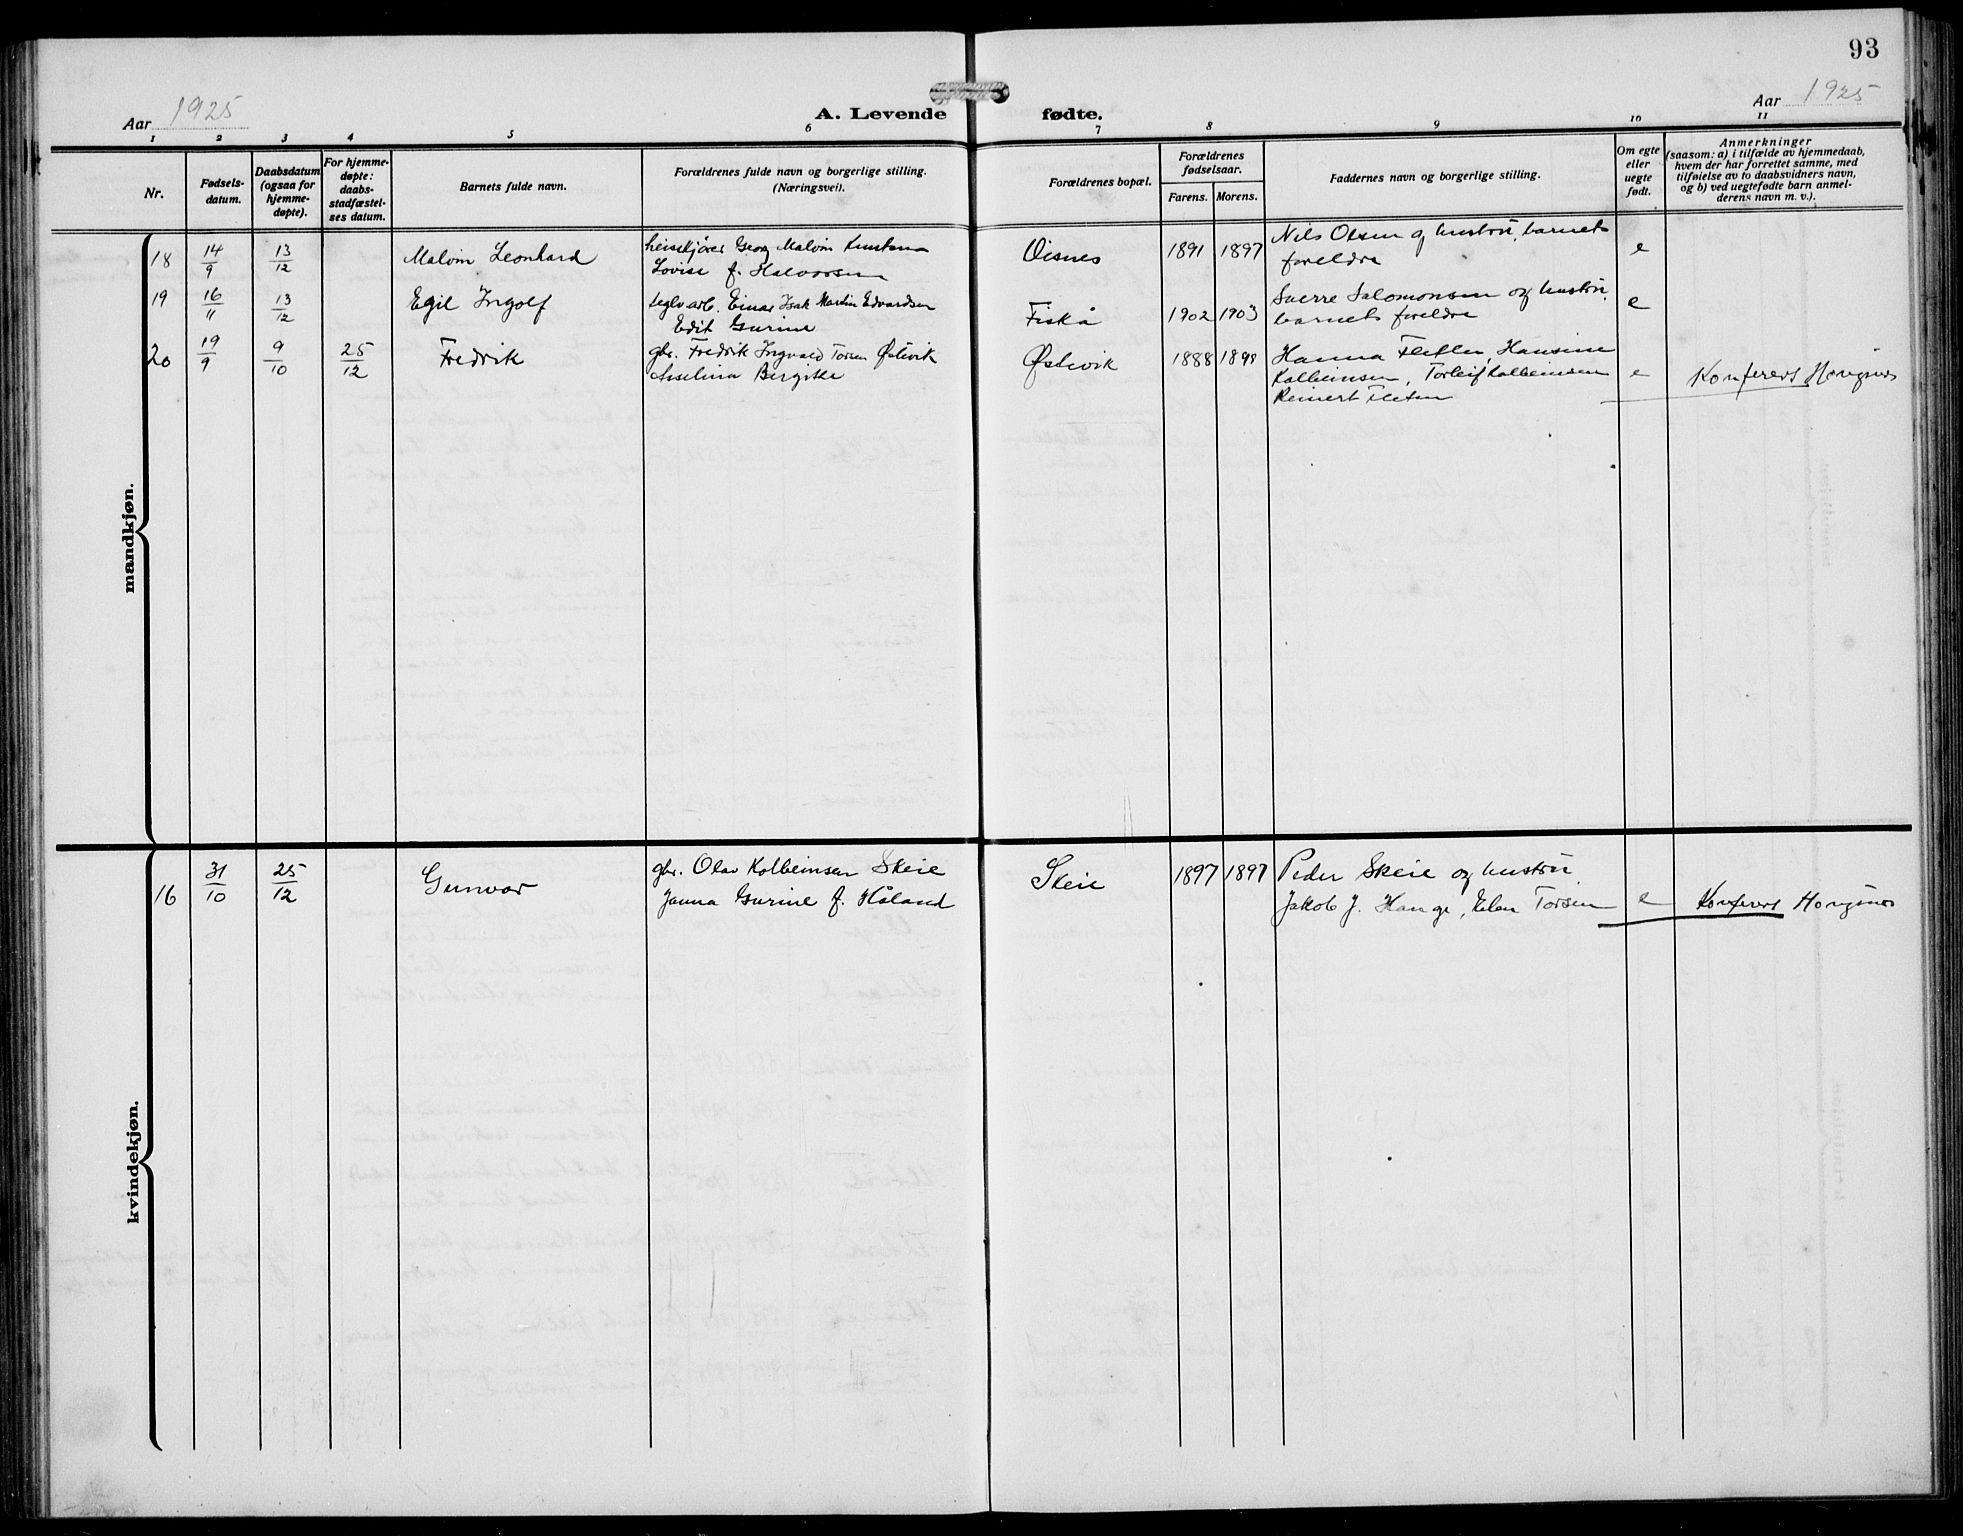 93
Aar 1925
A. Levende fødte.
Aar 1925
1 2 3 4 5 6 7 8 9 10 11
Nr.
Fødsels-
datum.
Daabsdatum
(ogsaa for
hjemme-
døpte).
For hjemme-
døpte:
daabs-
stadfæstel-
ses datum.
Barnets fulde navn.
Forældrenes fulde navn og borgerlige stilling.
(Næringsvei).
Forældrenes bopæl.
Forældrenes
fødselsaar.
Farens. Morens.
Faddernes navn og borgerlige stilling.
Om egte
eller
uegte
født.
Anmerkninger
(saasom: a) i tilfælde av hjemmedaab,
hvem der har forrettet samme, med
tilføielse av to daabsvidners navn,
og b) ved uegtefødte barn anmel-
derens navn m. v.).
mandkjøn.
18 14/9 13/12 Malvin Leonhard
Georg Malvin
Lovise f. Halvorsen
Øisnes 1891 1897
Nils Olsen og hustru, barnets
foreldre
e
19 16/11 13/12 Egil Ingolf
teglv.arb. Einar Isak Martin Edvardsen
Edit Gurine
Fiskå 1902 1903
Sverre Salomonsen og hustru,
barnets foreldre
e
20 19/9 9/10 25/12 Fredrik
gbr. Fredrik Ingvald Torsen Østevik
Anselina Bergitte
Østevik 1888 1898
Hanna Hansine
Kolbeinsen, Torleif Kolbeinsen
Reinert
e Konferer
kvindekjøn.
16 31/10 25/12 Gunvor
gbr. Olav Kolbeinsen Skeie
Janna Gurine f. Håland
Skeie 1897 1897
Peder Skeie og hustru
Jakob J. Hauge, Elen Torsen
e Konferer